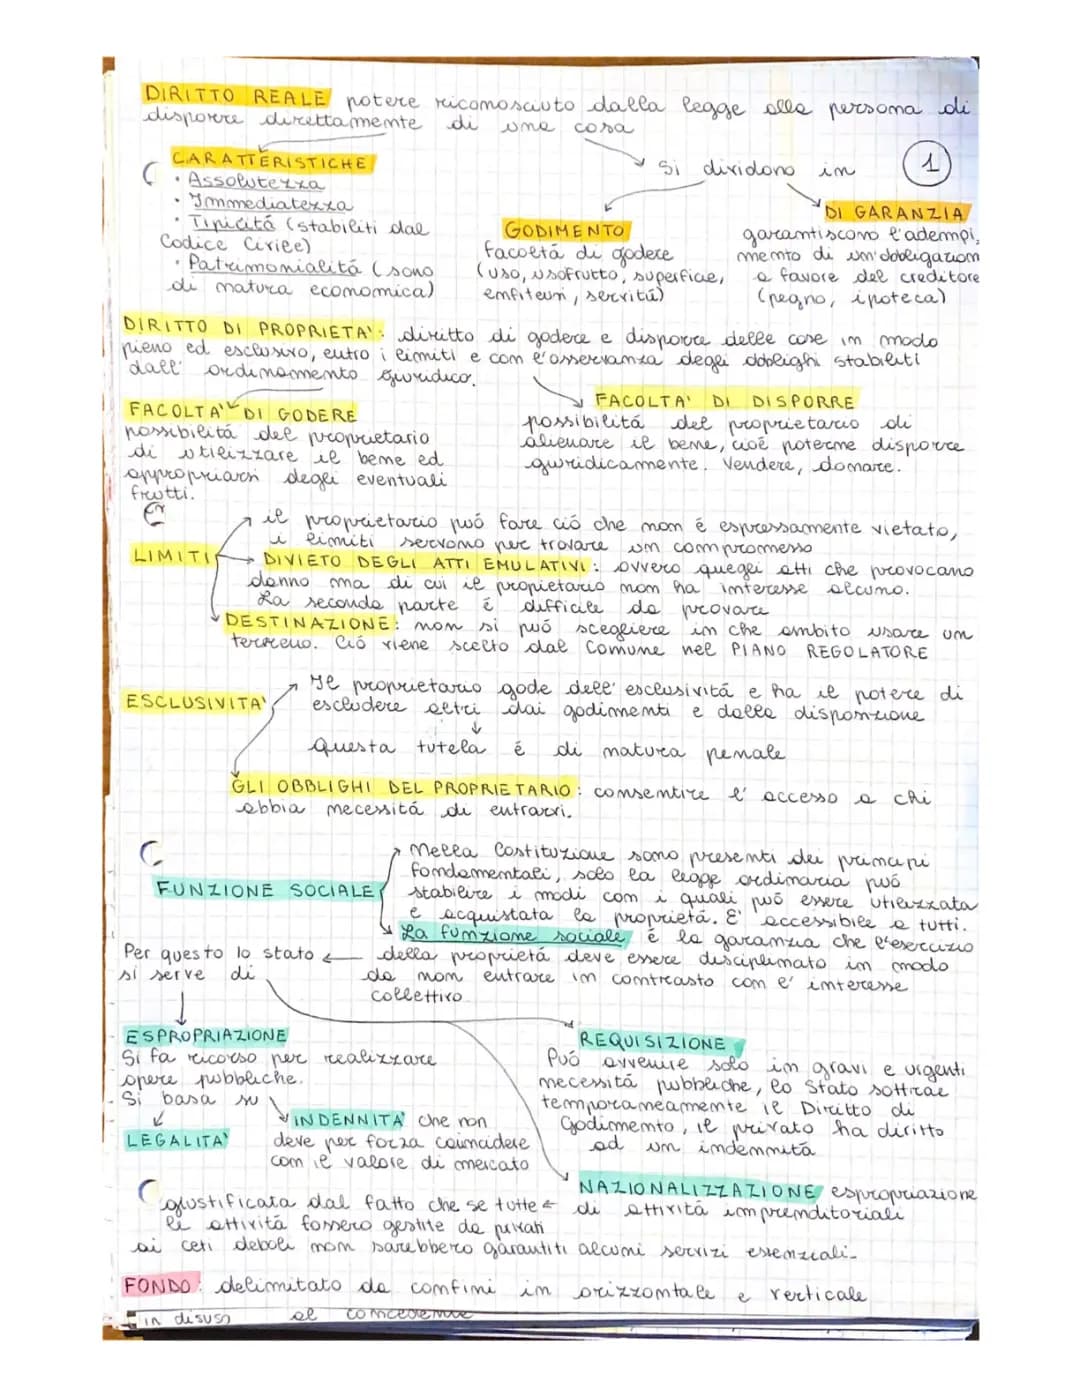 DIRITTO REALE potere riconosciuto dalla legge alla persona di
disporre direttamente di una cosa
CARATTERISTICHE
• Assolutezza
• Immediatezza
• Tipicitá (stabiliti dal
Codice Civile)
• Patrimonialitá (sono
di natura economica)
Si dividono in
1
GODIMENTO
facoltá di godere
(uso, usofrutto, superficie,
enfiteusi, servitú)
DI GARANZIA
garantiscono l'adempi,
mento di un'obbligazion
a favore del creditore
(pegno, ipoteca)
DIRITTO DI PROPRIETA': diritto di godere e disporre delle cose in modo
pieno ed esclusivo, entro i limiti e con l'osservanza degli obblighi stabiliti
dall' ordinamento giuridico.
FACOLTA' DI GODERE
possibilitá del proprietario
di utilizzare il bene ed
appropriarsi degli eventuali
frutti.
FACOLTA' DI DISPORRE
possibilitá del proprietario di
alienare il bene, cioé poterne disporre
giuridicamente. Vendere, donare.
LIMITI
il proprietario puó fare ció che non é espressamente vietato,
i limiti servono per trovare un compromesso
DIVIETO DEGLI ATTI EMULATIVI: ovvero quegli atti che provocano
danno ma di cui il proprietario non ha interesse alcuno.
La seconda parte é difficile da provare
DESTINAZIONE: non si puó scegliere in che ambito usare un
terreno. Ció viene scelto dal Comune nel PIANO REGOLATORE
ESCLUSIVITA'
Il proprietario gode dell' esclusivitá e ha il potere di
escludere altri dai godimenti e dalla disposizione
Questa tutela é di natura penale
GLI OBBLIGHI DEL PROPRIETARIO: consentire l' accesso a chi
abbia necessitá di entrarvi.
FUNZIONE SOCIALE
Nella Costituzione sono presenti dei principi
fondamentali, solo la legge ordinaria puó
stabilire i modi con i quali puó essere utilizzata
e acquistata la proprietá. E' accessibile a tutti.
La funzione sociale é la garanzia che l'esercizio
della proprietá deve essere disciplinato in modo
da non entrare in contrasto con l' interesse
collettivo
Per questo lo stato
si serve di
ESPROPRIAZIONE
Si fa ricorso per realizzare
opere pubbliche.
Si basa su
LEGALITA'
INDENNITA' che non
deve per forza coincidere
con il valore di mercato
REQUISIZIONE
Puó avvenire solo in gravi e urgenti
necessitá pubbliche, lo Stato sottrae
temporaneamente il Diritto di
Godimento, il privato ha diritto
ad un indennitá
NAZIONALIZZAZIONE espropriazione
di attivitá imprenditoriali
giustificata dal fatto che se tutte
le attivitá fossero gestite da privati
ai ceti deboli non sarebbero garantiti alcuni servizi essenziali.
FONDO: delimitato da confini in orizzontale e verticale
in disuso al concedente